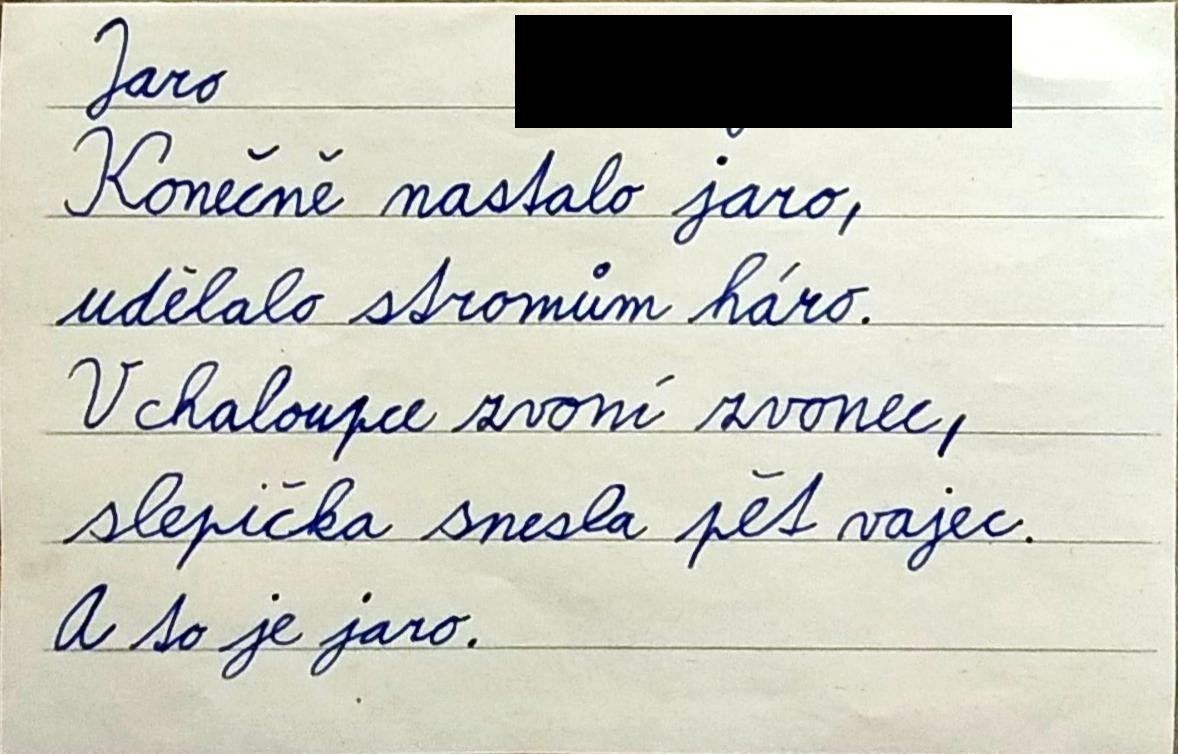 Jaro
Konečně nastalo jaro,
udělalo stromům háro.
V chaloupce zvoní zvonec,
slepička snesla pět vajec.
A to je jaro.